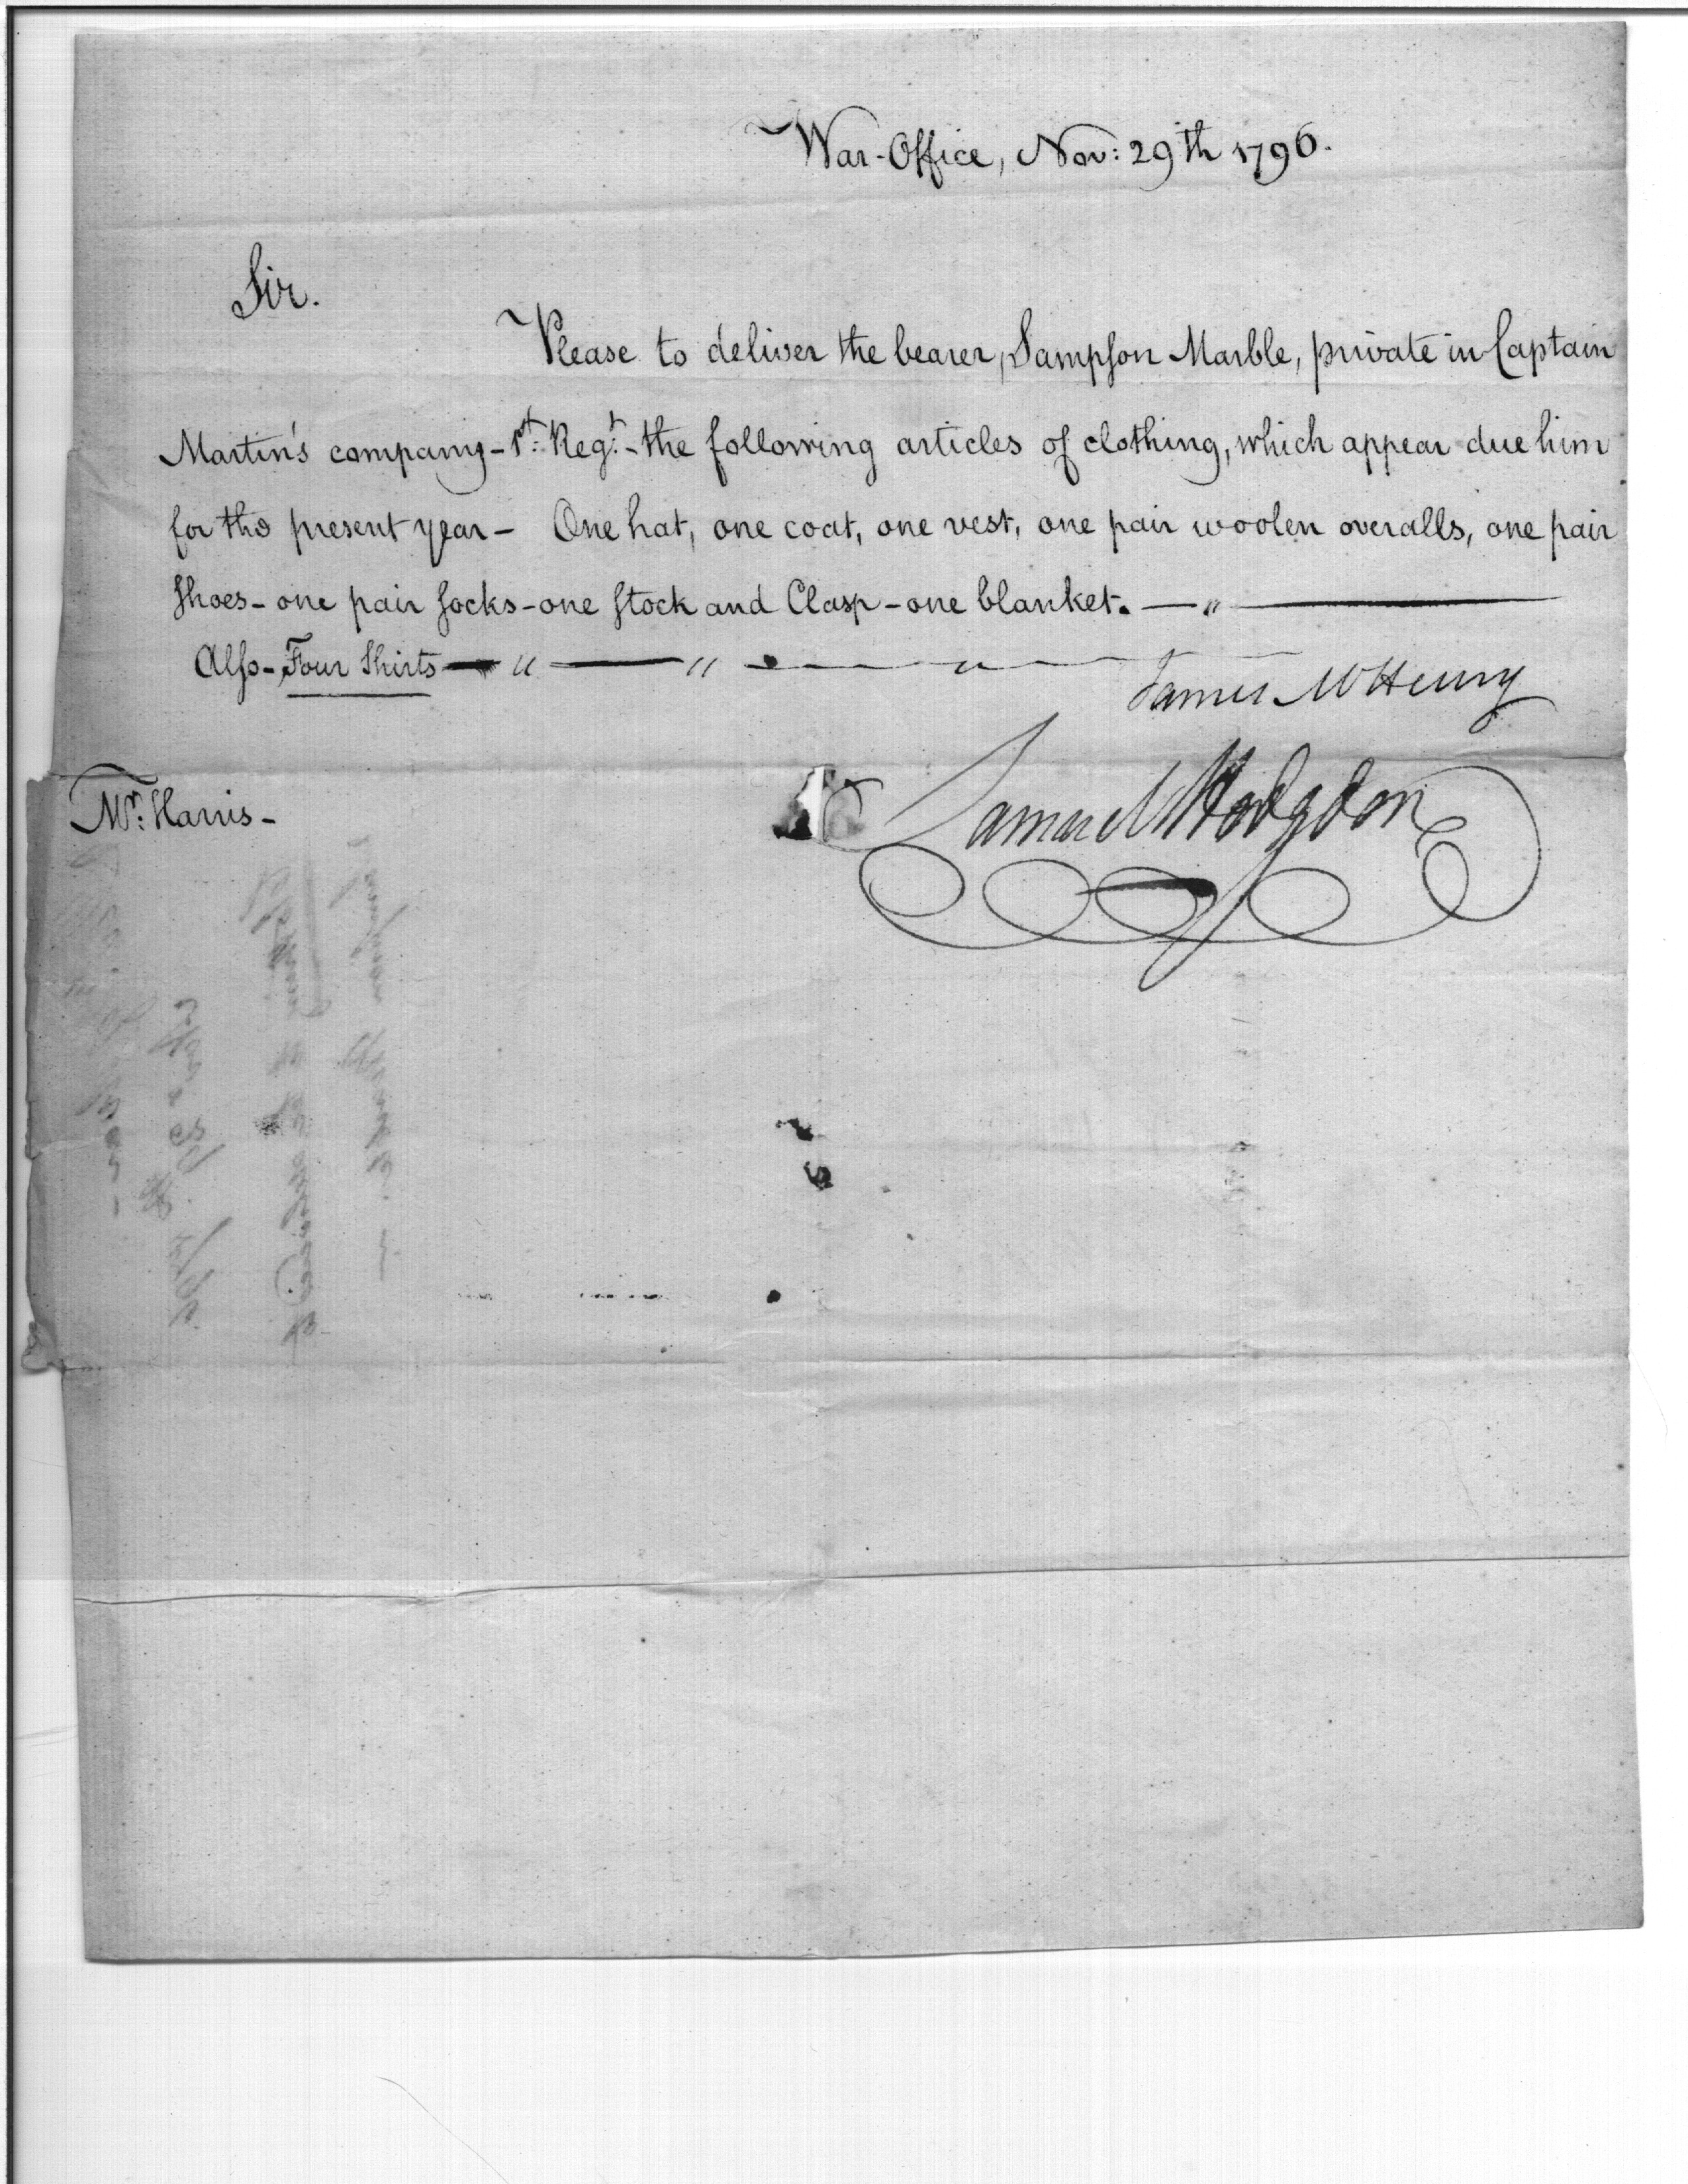 War-Office, Nov: 29th 1796.
Sir.
Please to deliver the bearer, Sampson Marble, private in Captain
Martin's company - 1st: Regt: - the following articles of clothing, which appear due him
for the present year - One hat, one coat, one vest, one pair woolen overalls, one pair
shoes - one pair socks - one stock and Clasp - one blanket. — " —
Also - Four Shirts — " — " — " —
James McHenry
Mr: Harris -
Samuel Hodgdon